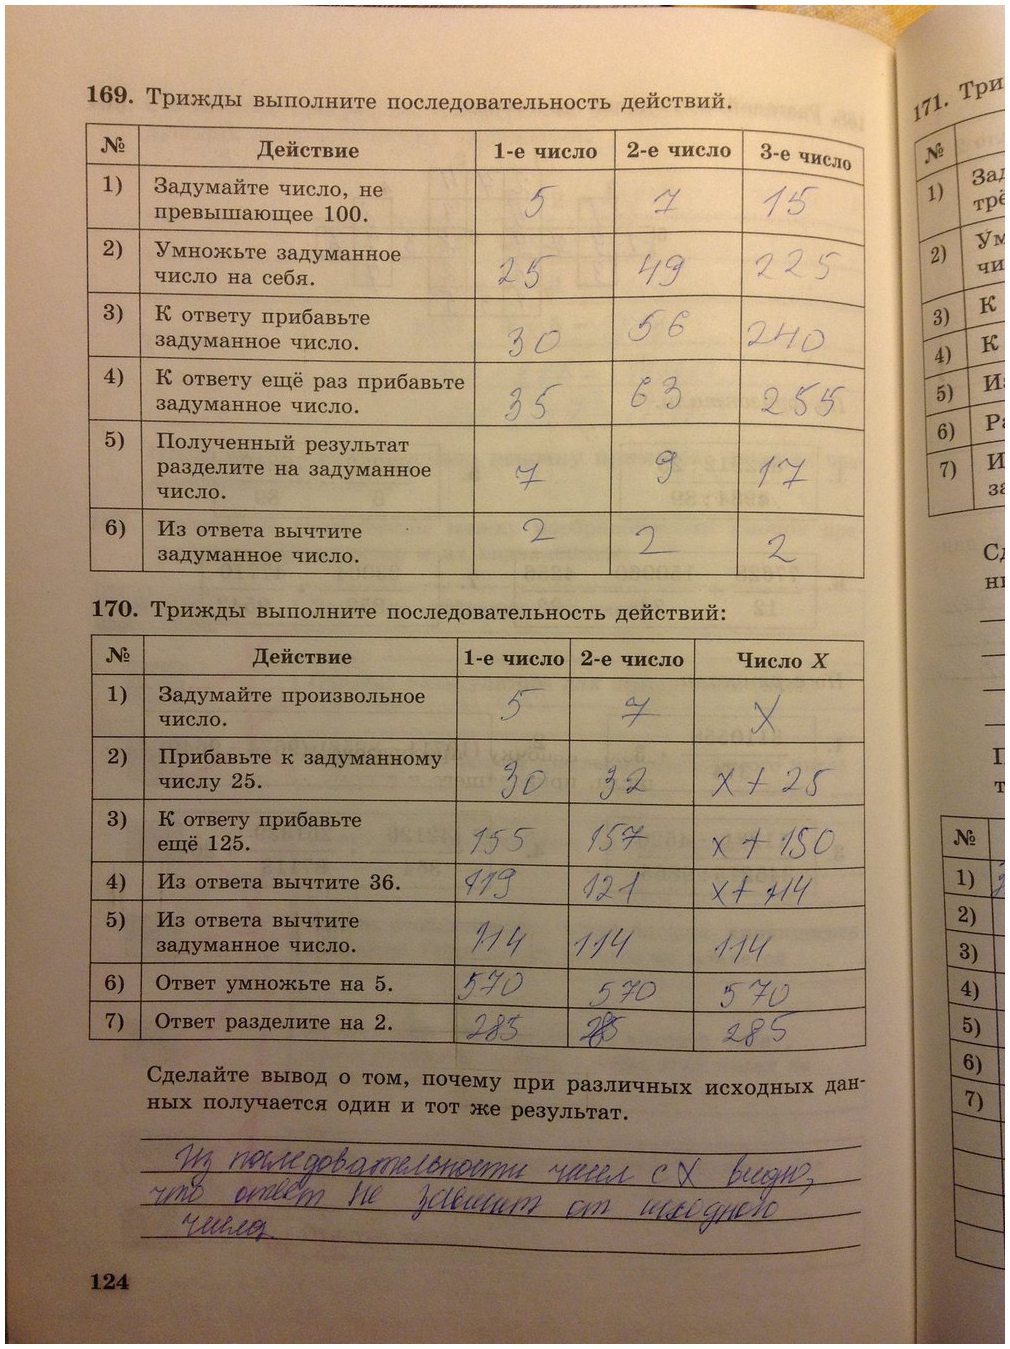 169. Трижды выполните последовательность действий.
№ Действие 1-е число 2-е число 3-е число
1) Задумайте число, не 5 7 15
превышающее 100.
2) Умножьте задуманное 25 49 225
число на себя.
3) К ответу прибавьте 30 56 240
задуманное число.
4) К ответу ещё раз прибавьте 35 63 255
задуманное число.
5) Полученный результат 7 9 17
разделите на задуманное
число.
6) Из ответа вычтите 2 2 2
задуманное число.
170. Трижды выполните последовательность действий:
№ Действие 1-е число 2-е число Число X
1) Задумайте произвольное 5 7 X
число.
2) Прибавьте к задуманному 30 32 x + 25
числу 25.
3) К ответу прибавьте 155 157 x + 150
ещё 125.
4) Из ответа вычтите 36. 119 121 x + 114
5) Из ответа вычтите 114 114 114
задуманное число.
6) Ответ умножьте на 5. 570 570 570
7) Ответ разделите на 2. 285 285 285
Сделайте вывод о том, почему при различных исходных дан-
ных получается один и тот же результат.
Из последовательности чисел с X видно,
что ответ не зависит от исходного
числа.
124
171. Три
№
1) Зад
трё
2) Ум
чи
3) К
4) К
5) Из
6) Ра
7) И
за
Сд
ны
П
т
№
1)
2)
3)
4)
5)
6)
7)